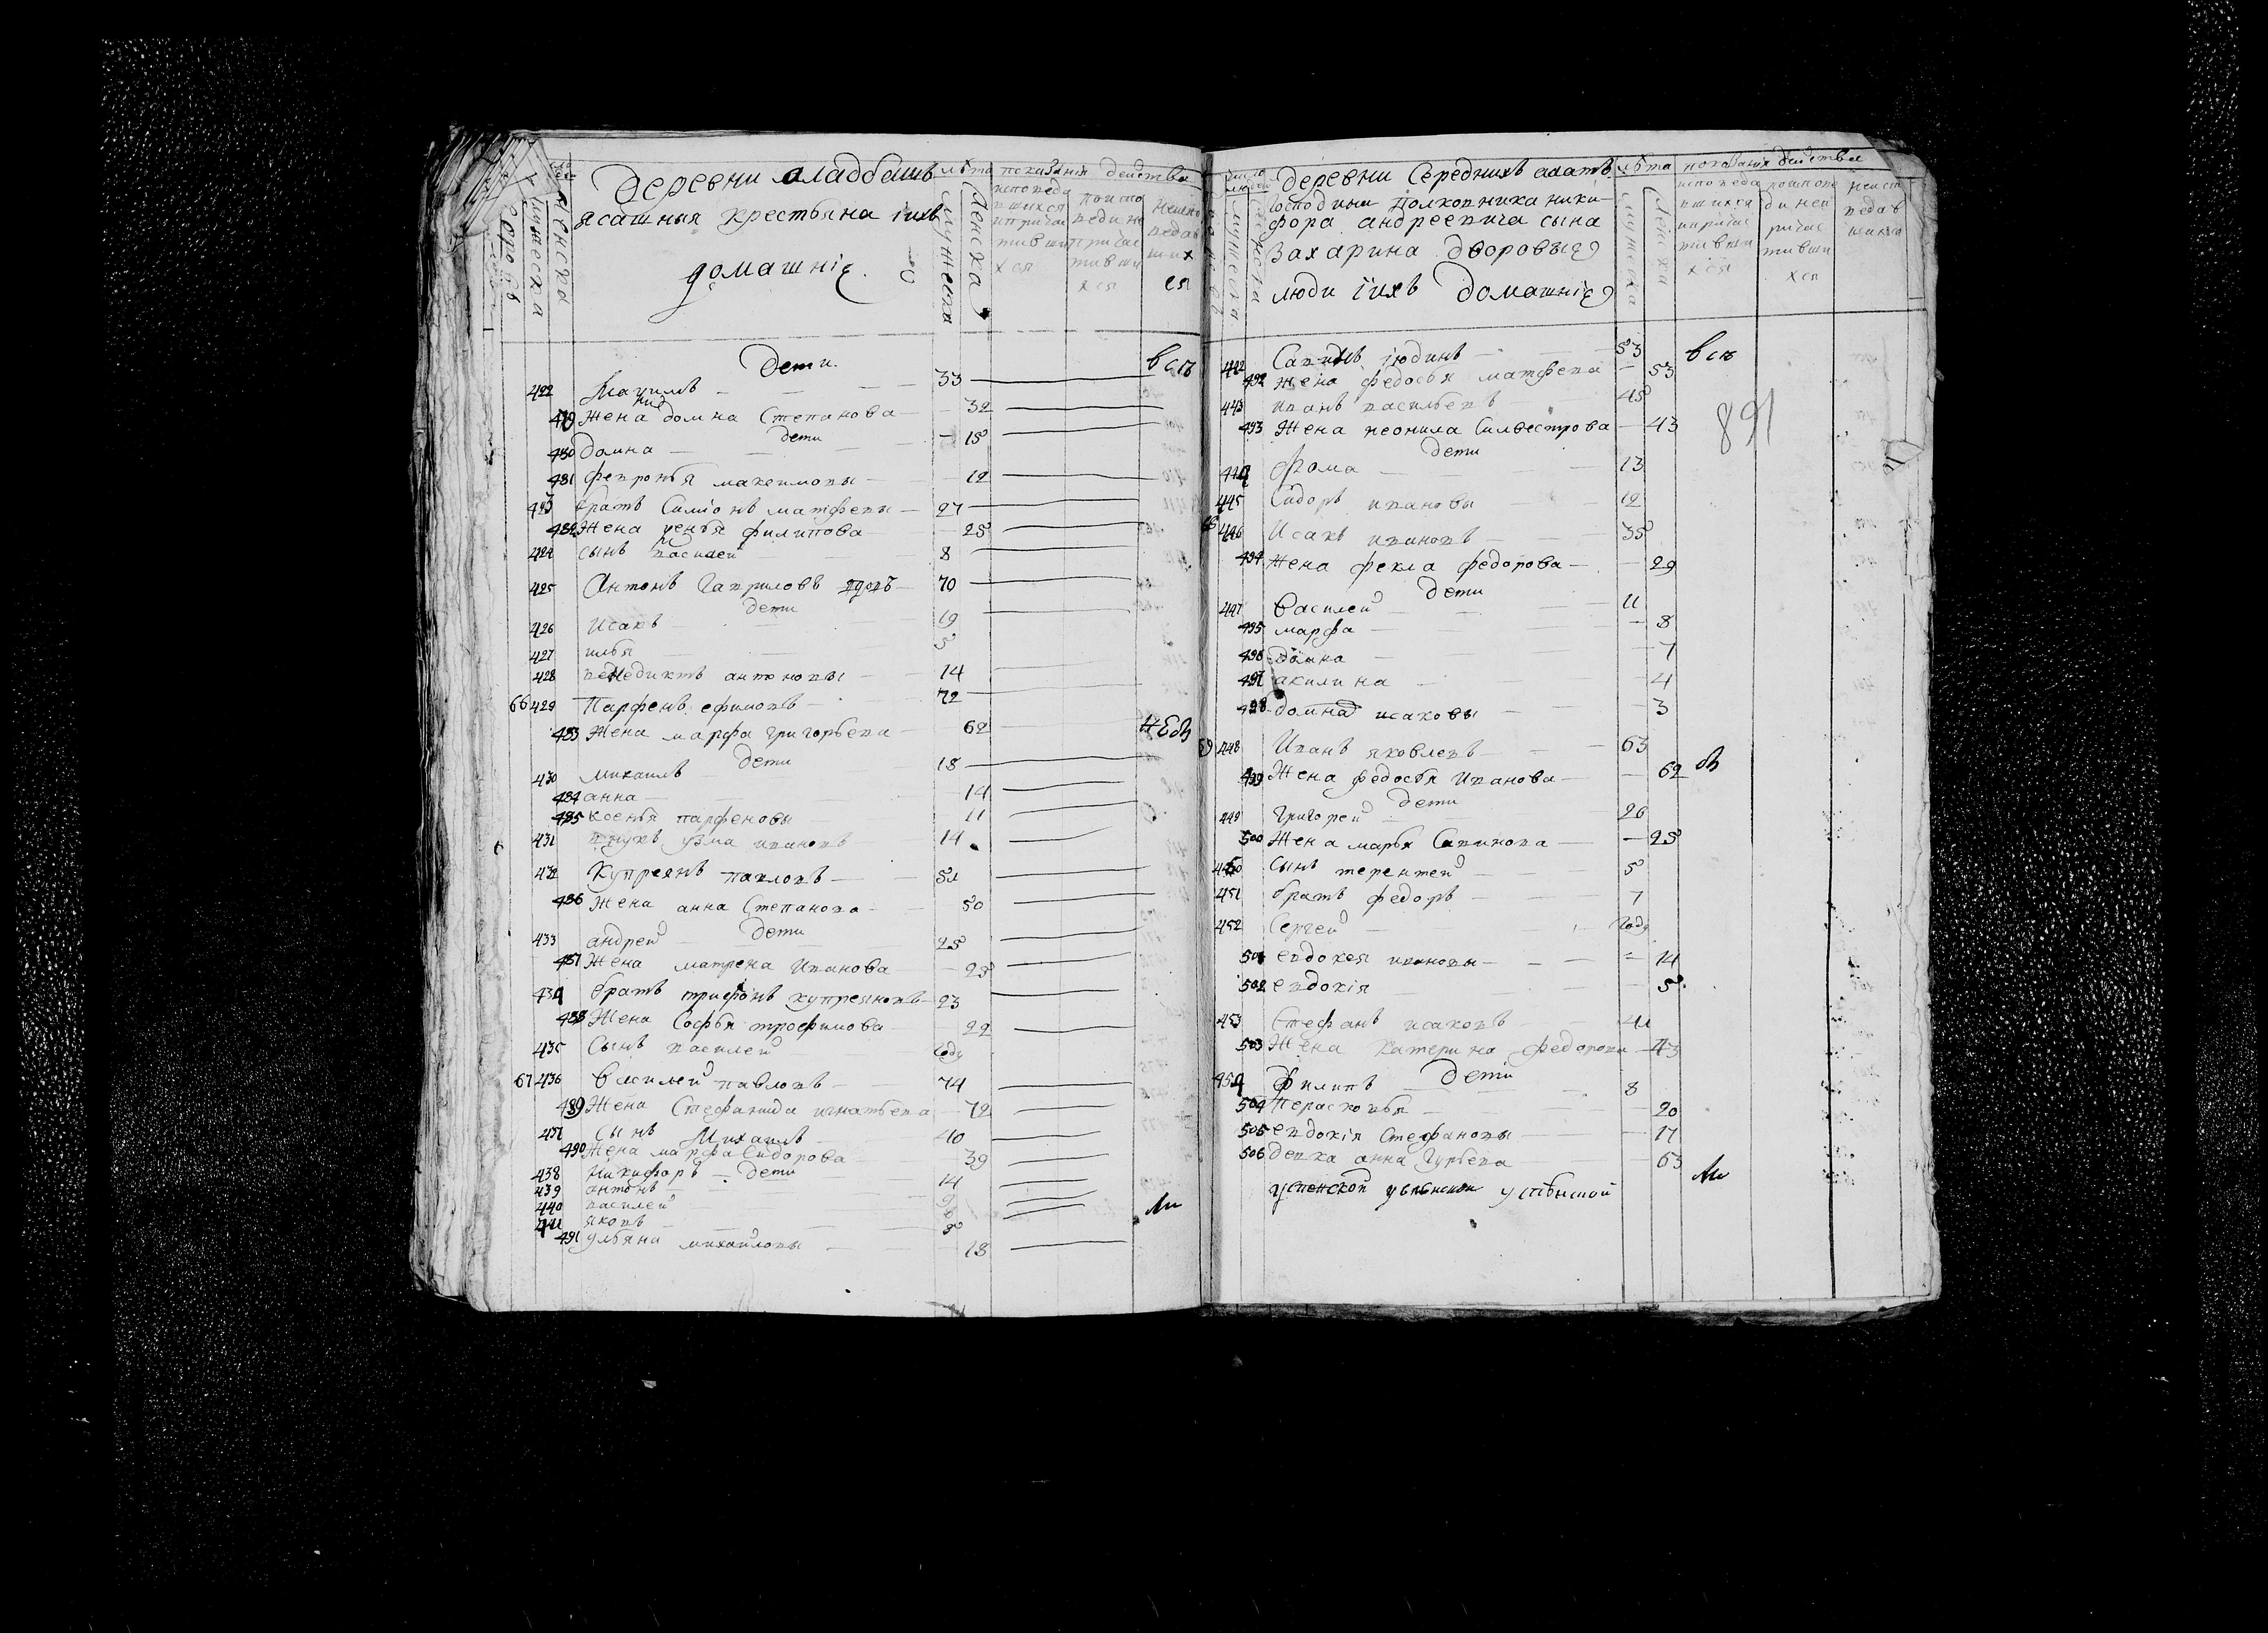 Деревни аладбашъ
ясашныя крестьяна iихъ
домашнiе
лѣта
мужеска
Женска
показанiя действа
Дети
всъ
422 Максимъ 33
479 Жена домна Степанова 32
дети
480 Домна 15
481 февронья максимовы 12
423 братъ Симiонъ матфевы 27
482 Жена ксенья филипова 25
424 сынъ василей 8
425 Антонъ Гавриловъ вдовъ 70
дети
426 Исакъ 19
427 илья 5
428 венедиктъ антоновы 14
66 429 Парфенъ ефимовъ 72
483 Жена марфа григорьева 62
дети
430 михаилъ 18
484 анна 14
485 ксенья парфеновы 11
431 внукъ узма ивановъ 14
432 Купреянъ павловъ 51
486 Жена анна Степанова 50
дети
433 андрей 25
487 Жена матрена Иванова 25
434 братъ трифонъ купреяновъ 23
488 Жена Софья трофимова 22
435 Сынъ василей году
67 436 Василей павловъ 74
489 Жена Стефанида игнатьева 72
437 Сынъ Михаилъ 40
490 Жена марфа Сидорова 39
438 Никифоръ дети 14
439 антонъ 9
440 василей 6
441 яковъ 5
491 ульяна михаиловы 18
Деревни Середнихъ алатъ
Господина Полковника ники-
фора андреевича сына
Захарина дворовые
люди iихъ Домашнiе
лѣта
мужеска
Женска
показанiя действа
442 Савинъ iюдинъ 53 всъ
492 Жена федосья матфева 53
443 иванъ васильевъ 45
493 Жена неонила Силвестрова 43
891
дети
444 Фома 13
445 Сидоръ ивановы 12
68 446 Исакъ ивановъ 35
494 Жена фекла федорова 29
Дети
447 Василей 11
495 марфа 8
496 данна 7
497 акилина 4
498 домна исаковы 3
69 448 Иванъ яковлевъ 63
499 Жена федосья Иванова 62
дети
449 Григорей 26
500 Жена марья Савинова 25
450 Сынъ терентей 5
451 братъ федоръ 7
452 Сергей году
501 евдокея ивановы 14
502 евдокiя 5
453 Стефанъ исаковъ 41
503 Жена Катерина федорова 43
Дети
454 Филипъ 8
504 Перасковья 20
505 евдокiя Стефановы 17
506 девка анна Гурьева 63